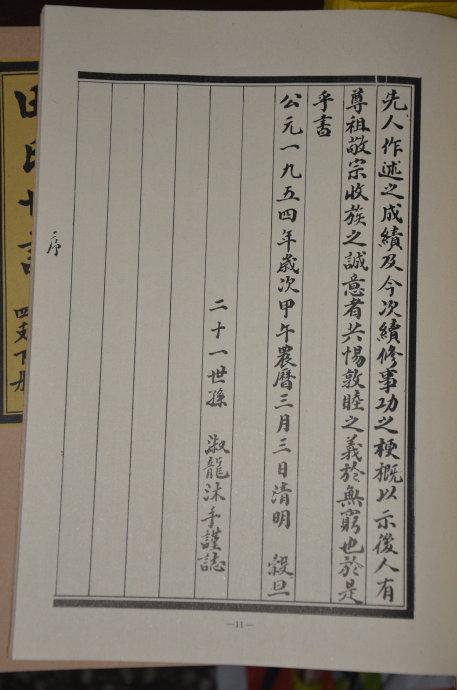 先人作述之成績及今次續修事功之梗概以示後人有
尊祖敬宗收族之誠意者共惕敦睦之義於無窮也於是
乎書
公元一九五四年歲次甲午農曆三月三日清明 穀旦
二十一世孫 淑龍沐手謹誌
序
—11—
四支下册